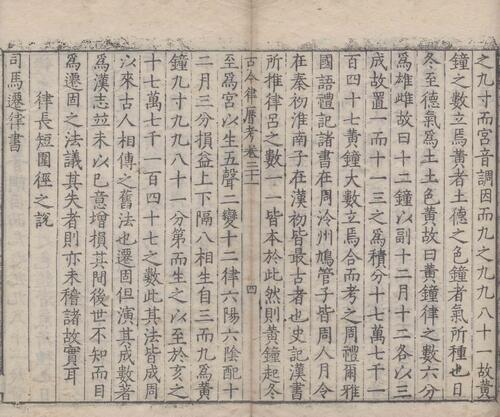 之九寸而宮音調因而九之九九八十一故黃
鐘之數立焉黃者土德之色鐘者氣所種也日
冬至德氣為土土色黃故曰黃鐘律之數六分
為雄雌故曰十二鐘以副十二月十二各以三
成故置一而十一三之為積分十七萬七千一
百四十七黃鐘大數立焉合而考之周禮爾雅
國語禮記諸書在周泠州鳩管子皆周人月令
在秦初淮南子在漢初皆最古者也史記漢書
所推律呂之數一一皆本於此然則黃鐘起冬
古今律曆考 卷 四
至為宮以生五聲二變十二律六陽六陰配十
二月三分損益上下隔八相生自三而九為黃
鐘九寸九九八十一分第而生之以至於亥之
十七萬七千一百四十七之數此其法皆成周
以來古人相傳之舊法也遷固但演其成數著
為漢志並未以己意增損其間後世不知而目
為遷固之法議其失者則亦未稽諸故實耳
律長短圍徑之說
司馬遷律書